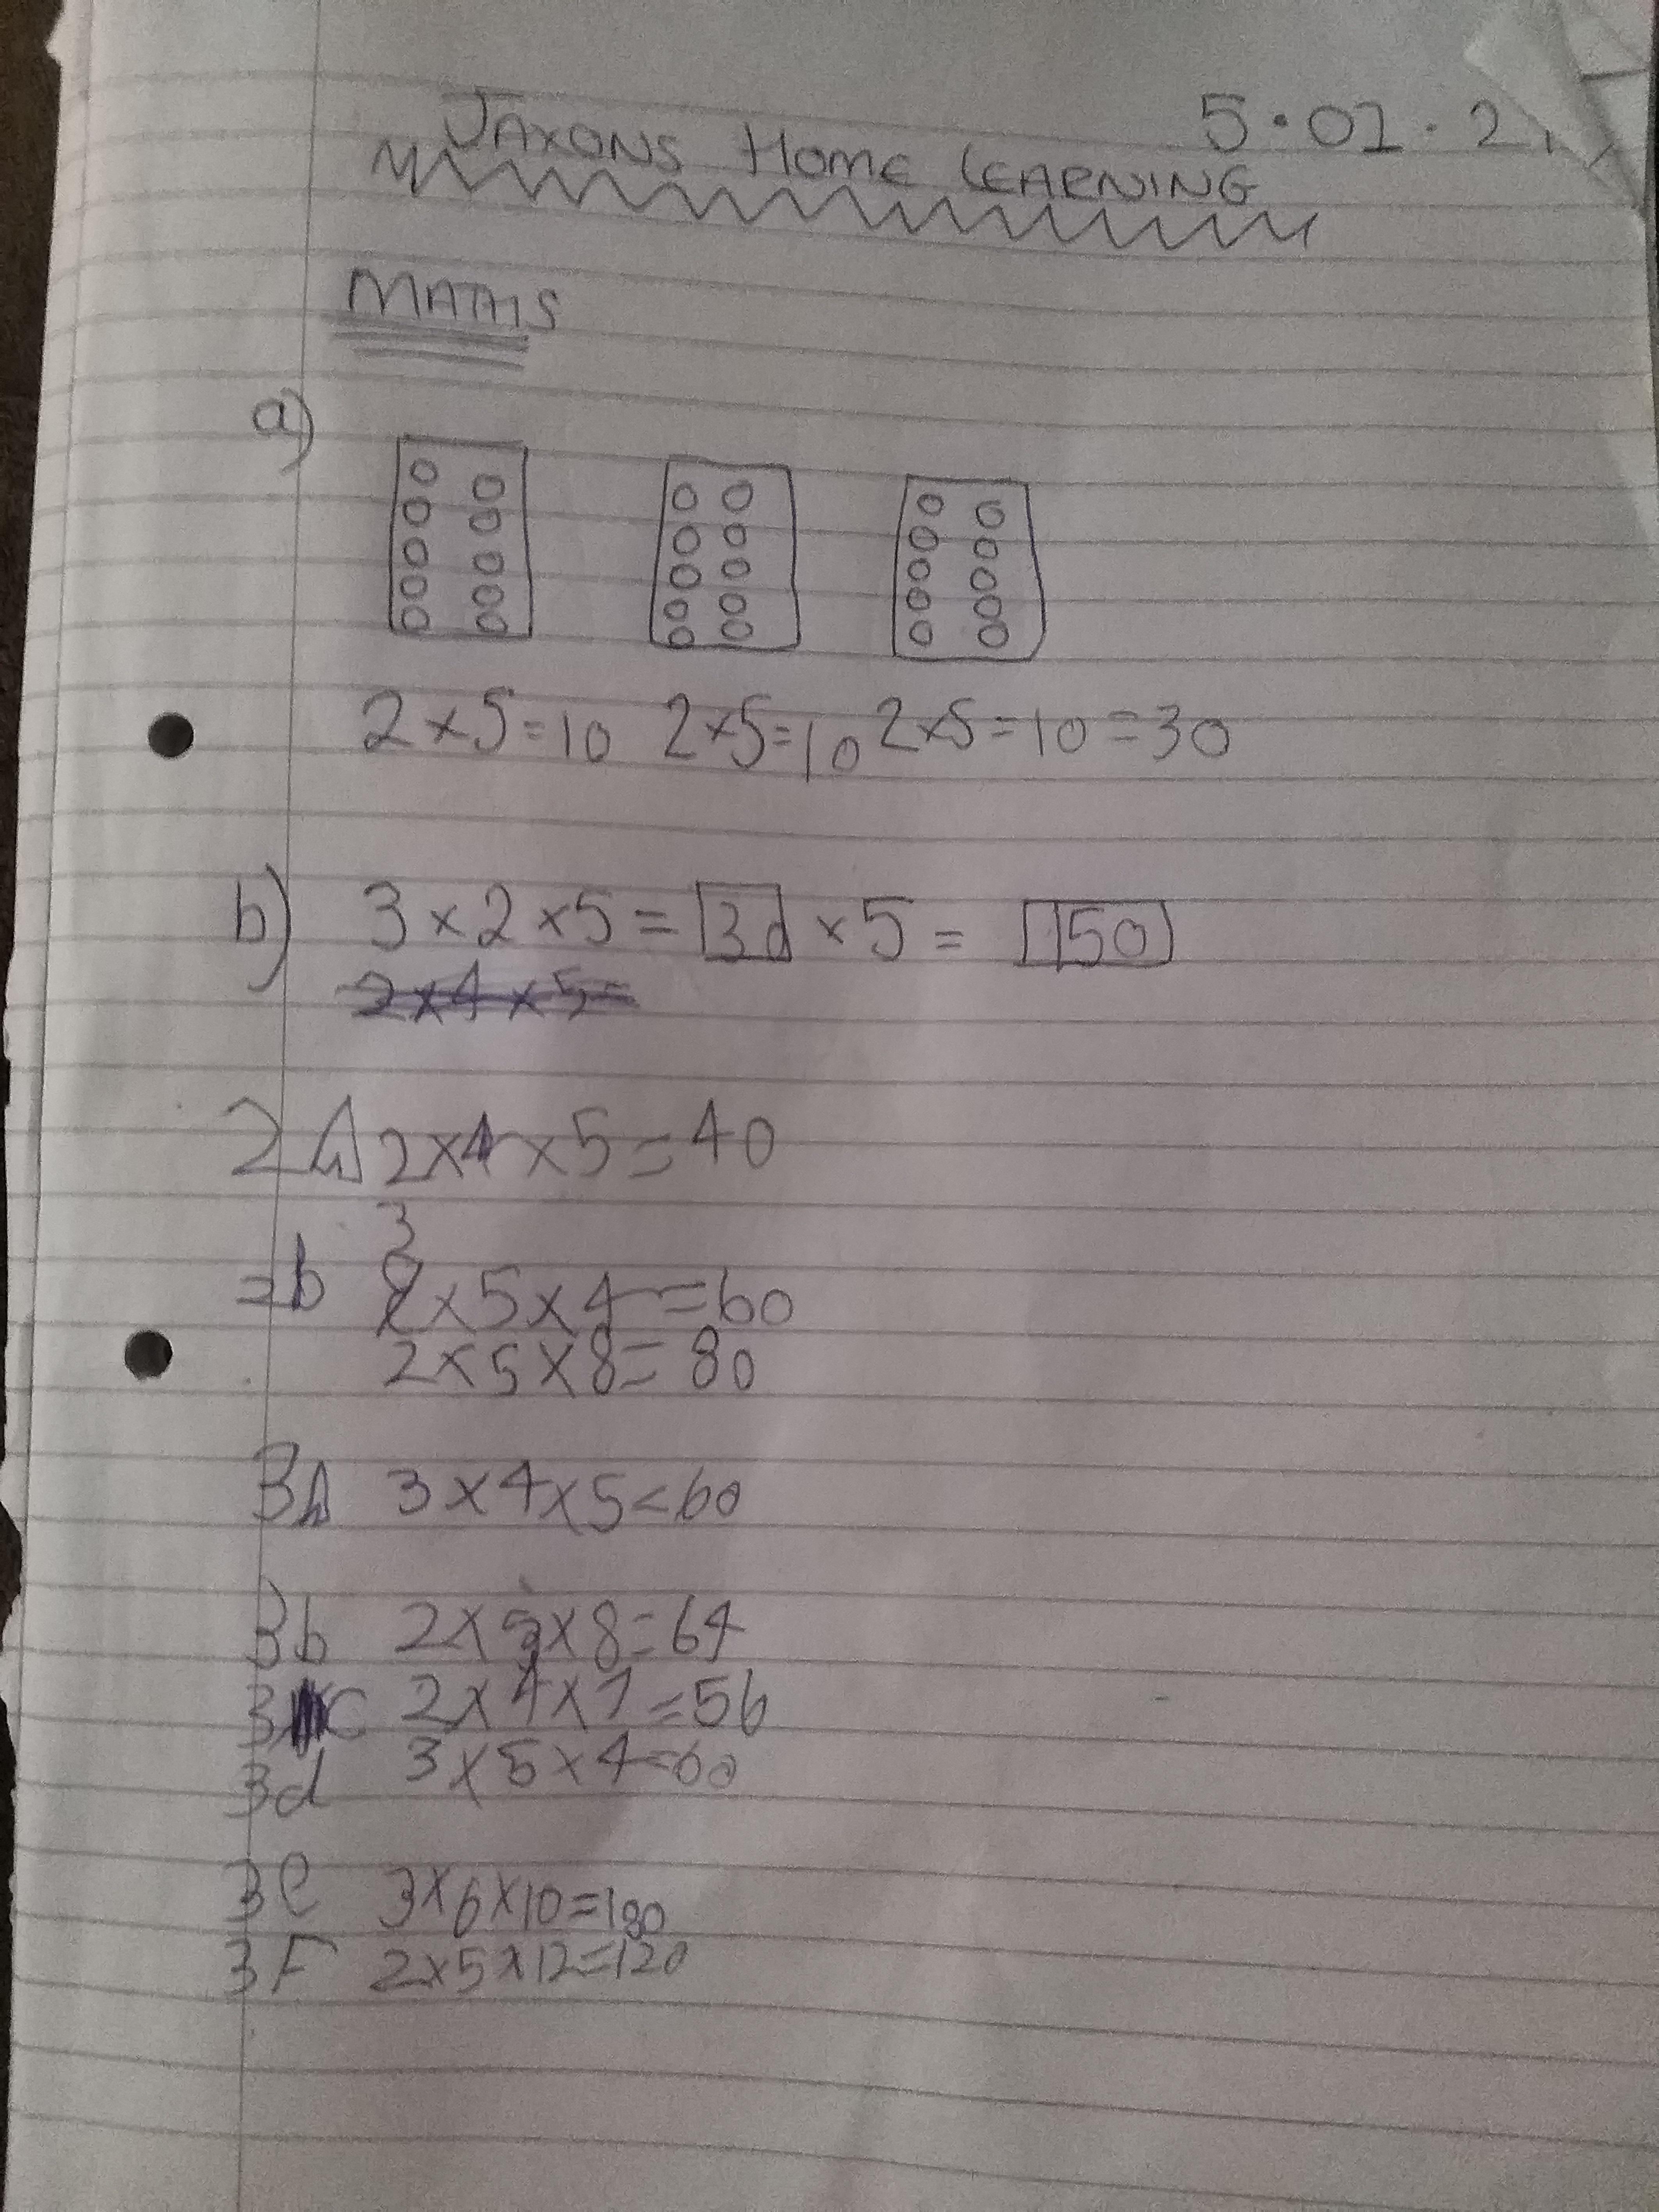 JAXONS HOME LEARNING 5.01.21
MATHS
a)
2×5=10 2×5=10 2×5=10=30
b) 3×2×5=30×5=150
2×4×5=
2A 2×4×5=40
3
=b 2×5×4=60
2×5×8=80
3A 3×4×5=60
3b 2×5×8=64
3C 2×4×7=56
3d 3×5×4=60
3e 3×6×10=180
3F 2×5×12=120